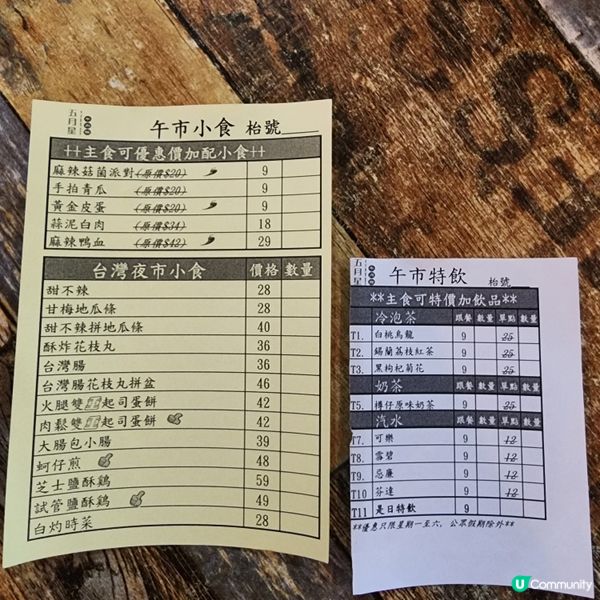 五月星
午市小食 枱號
++主食可優惠價加配小食++
麻辣菇菌派對 (原價$20) 9
手拍青瓜 (原價$20) 9
黃金皮蛋 (原價$20) 9
蒜泥白肉 (原價$34) 18
麻辣鴨血 (原價$42) 29
台灣夜市小食 價格 數量
甜不辣 28
甘梅地瓜條 28
甜不辣拼地瓜條 40
酥炸花枝丸 36
台灣腸 36
台灣腸花枝丸拼盆 46
火腿雙 起司蛋餅 42
肉鬆雙 起司蛋餅 42
大腸包小腸 39
蚵仔煎 48
芝士鹽酥鷄 59
試管鹽酥鷄 49
白灼時菜 28
五月星
午市特飲 枱號
**主食可特價加飲品**
冷泡茶 跟餐 數量 單點 數量
T1. 白桃烏龍 9 25
T2. 錫蘭荔枝紅茶 9 25
T3. 黑枸杞菊花 9 25
奶茶 跟餐 數量 單點 數量
T5. 樽仔原味奶茶 9 25
汽水 跟餐 數量 單點 數量
T7. 可樂 9 12
T8. 雪碧 9 12
T9. 忌廉 9 12
T10 芬達 9 12
T11 是日特飲 9
**優惠只限星期一至六, 公眾假期除外**
U Community